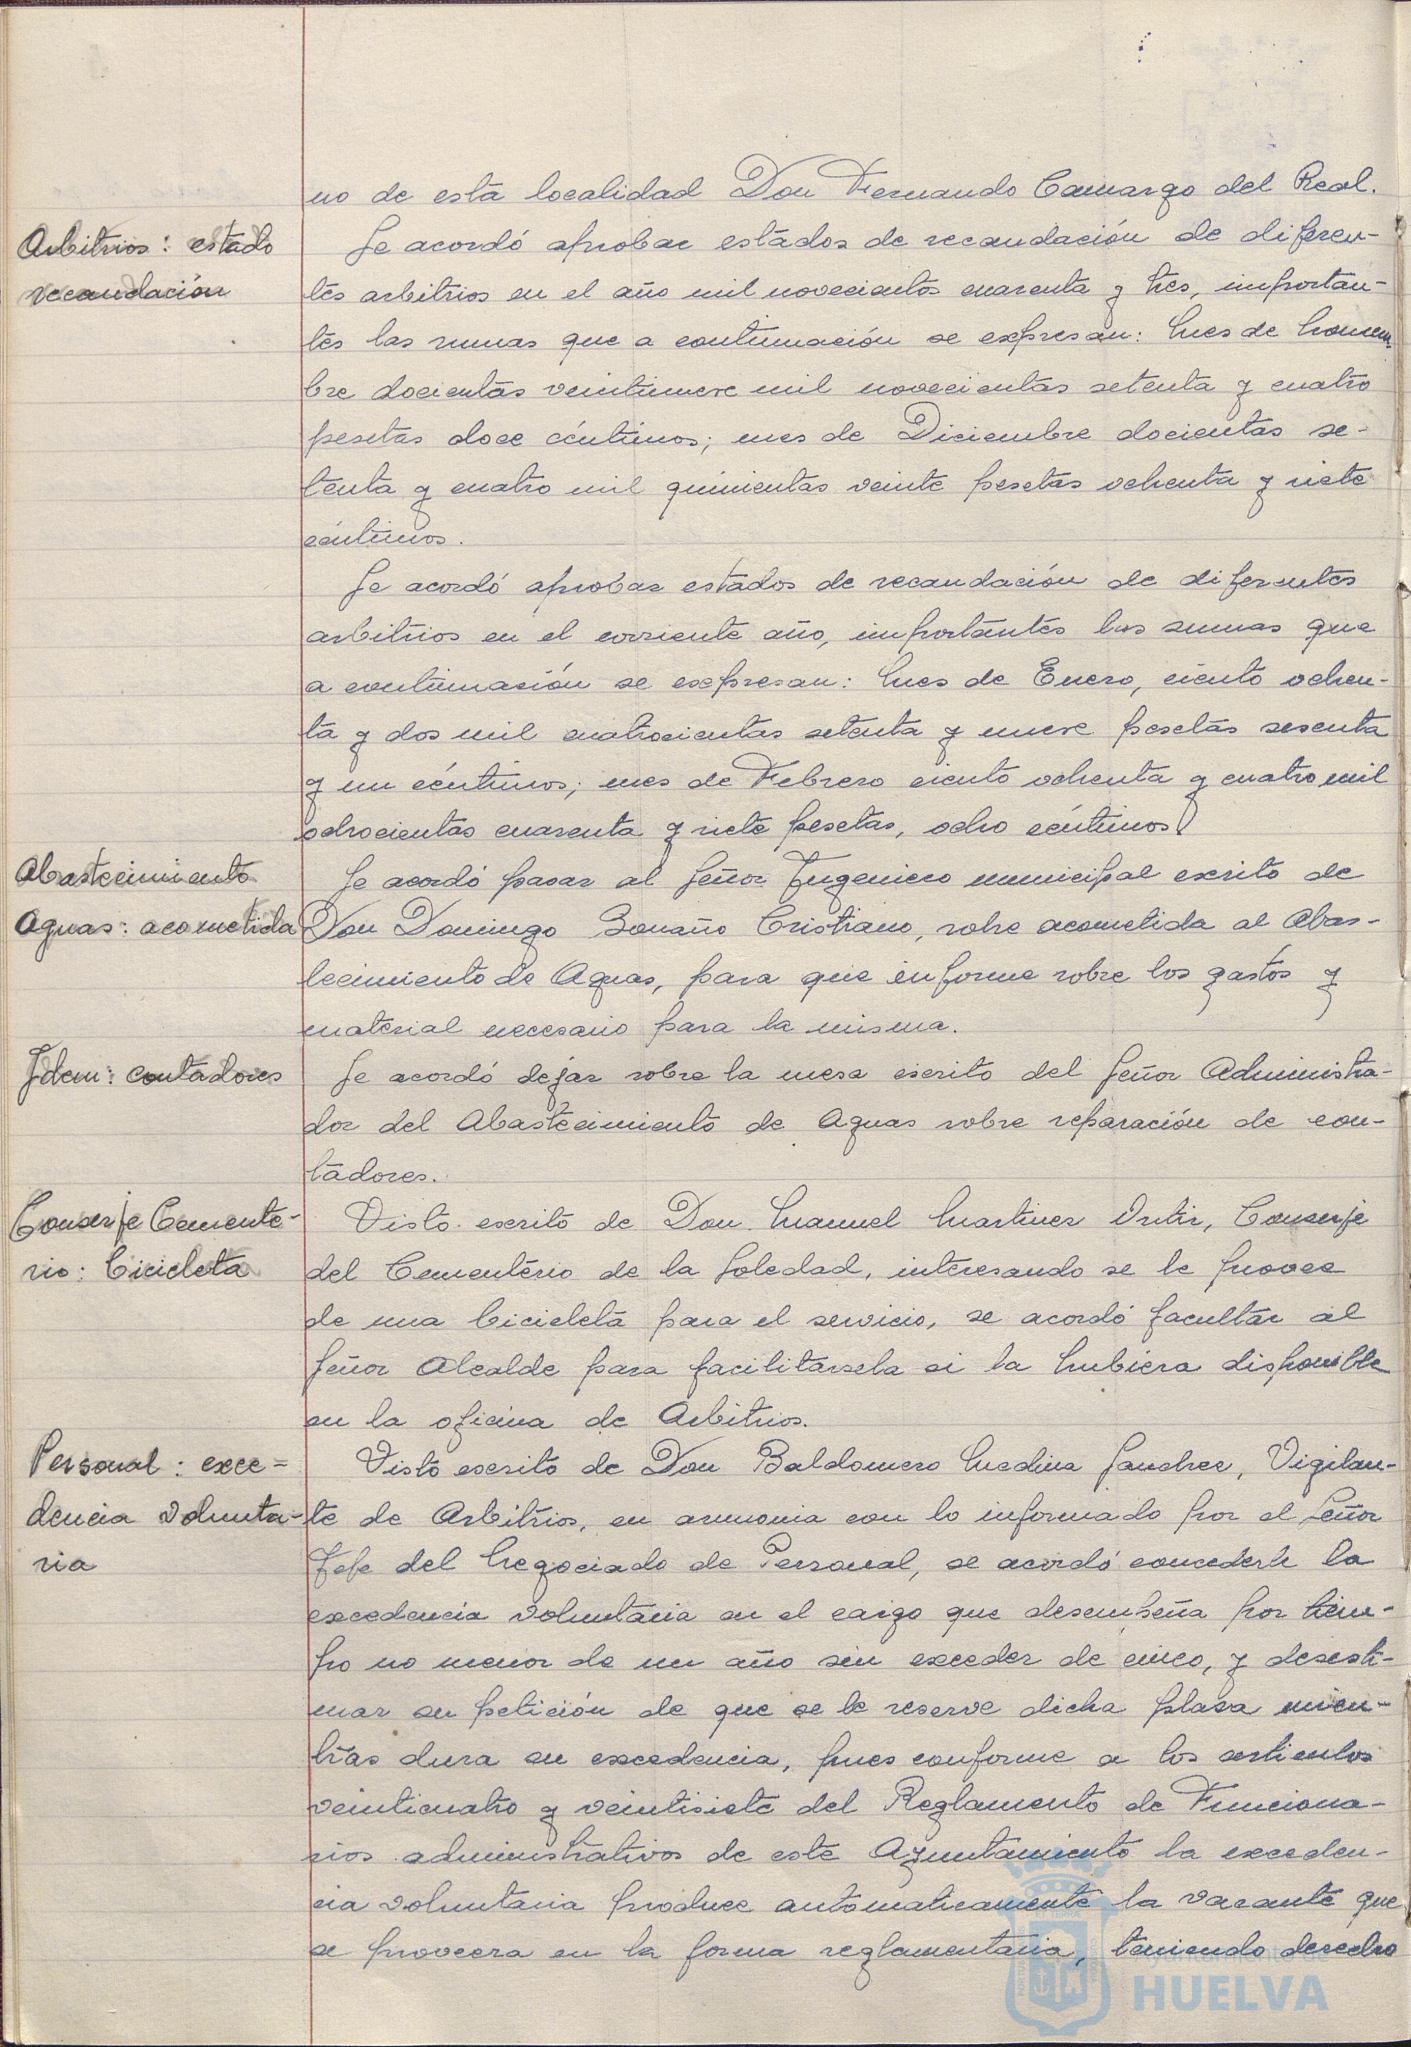 no de esta localidad Don Fernando Camargo del Real.
Arbitrios: estado
recaudación
Se acordó aprobar estados de recaudación de diferen-
tes arbitrios en el año mil novecientos cuarenta y tres, importan-
tes las sumas que a continuación se expresan: Mes de Noviem-
bre docientas veintinueve mil novecientas setenta y cuatro
pesetas doce céntimos; mes de Diciembre docientas se-
tenta y cuatro mil quinientas veinte pesetas ochenta y siete
céntimos.
Se acordó aprobar estados de recaudación de diferentes
arbitrios en el corriente año, importantes las sumas que
a continuasión se expresan: Mes de Enero, ciento ochen-
ta y dos mil cuatrocientas setenta y nueve pesetas sesenta
y un céntimos; mes de Febrero ciento ochenta y cuatro mil
ochocientas cuarenta y siete pesetas, ocho céntimos.
Abastecimiento
Aguas: acometida
Se acordó pasar al Señor Ingeniero municipal escrito de
Don Domingo Bonaño Cristiano, sobre acometida al Abas-
tecimiento de Aguas, para que informe sobre los gastos y
material necesario para la misma.
Idem: contadores
Se acordó dejar sobre la mesa escrito del Señor Administra-
dor del Abastecimiento de Aguas sobre reparación de con-
tadores.
Conserje Cemente-
rio: bicicleta
Visto escrito de Don Manuel Martinez Ortiz, Conserje
del Cementerio de la Soledad, interesando se le provee
de una bicicleta para el servicio, se acordó facultar al
Señor Alcalde para facilitarsela si la hubiera disponible
en la oficina de Arbitrios.
Personal: exce=
dencia volunta-
ria
Visto escrito de Don Baldomero Medina Sanchez, Vigilan-
te de Arbitrios, en armonia con lo informado por el Señor
Jefe del Negociado de Personal, se acordó concederle la
excedencia voluntaria en el cargo que desempeña por tiem-
po no menor de un año sin exceder de cinco, y desesti-
mar su petición de que se le reserve dicha plaza mien-
tras dura su excedencia, pues conforme a los articulos
veinticuatro y veintisiete del Reglamento de Funciona-
rios administrativos de este Ayuntamiento la exceden-
cia voluntaria produce automaticamente la vacante que
se proveera en la forma reglamentaria, teniendo derecho
Ayuntamiento de
HUELVA